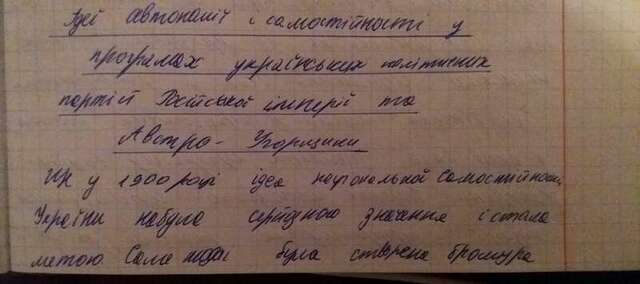 Ідеї автономії і самостійності у
програмах українських політичних
партій Російської імперії та
Австро-Угорщини
Ще у 1900 році ідея національної самостійності
України набула серйозного значення і стала
метою. Саме тоді була створена брошура